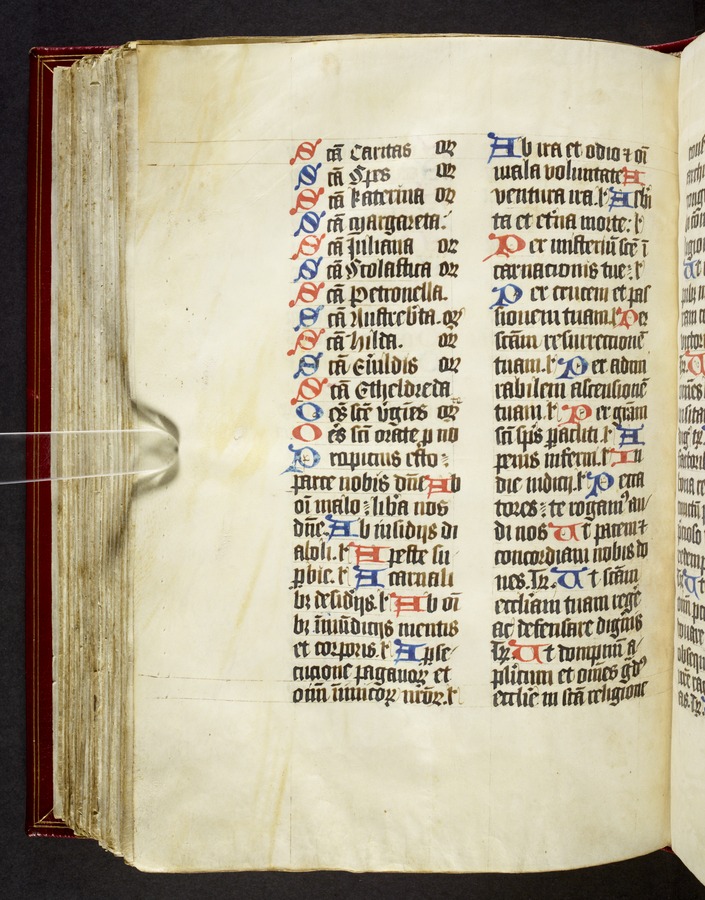 Scā Caritas orꝫ
Scā Spes orꝫ
Scā katerina orꝫ
Scā Margareta.
Scā Juliana orꝫ
Scā Scolastica orꝫ
Scā Petronella.
Scā Austreb̄ta. orꝫ
Scā hilda. orꝫ
Scā orꝫ
Scā Etheldreda
Oēs scē v̄gīes orꝫ
Oēs scī orate ꝓ nob
Propicius esto:
parce nobis dn̄e Ab
oī malo: lib̄a nos
dn̄e. Ab insidijs di
aboli. l A peste su
ꝑbie. l A carnali
bꝫ desidijs. l Ab oī
bꝫ īmūdicijs mentis
et corporis. l A ꝑse
cucione paganoꝝ et
oīm īimicoꝝ nr̄oꝝ. l
Ab ira et odio ⁊ oī
mala voluntate A
ventura ira. l A sb̄i
ta et et̄na morte: l
Per misteriū scē ī
carnacionis tue: l
Per crucem et pas
sionem tuam. l Per
scām resurrectionē
tuam. l Per adm
rabilem ascensionē
tuam. l Per gram
scī sp̄s paracliti. l A
penis inferni. l In
die iudicij. l Pecca
tores: te rogam᷒ au
di nos Ut pacem ⁊
concordiam nobis do
nes. Ut scām
eccliam tuam regē
ac defensare dign̄is
Ut dompnū a
pl̄icum et om̄es gͣd᷒
ecclie in scā religione